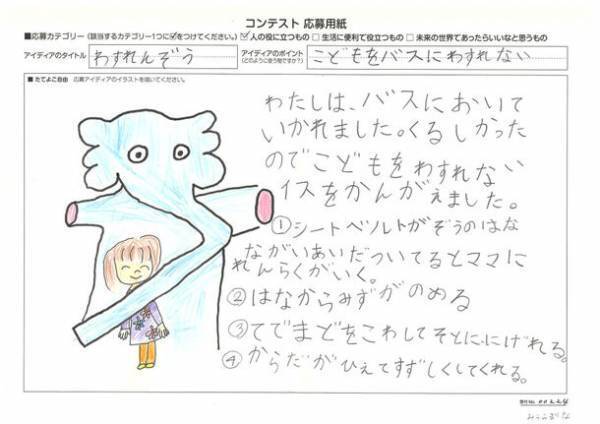 コンテスト 応募用紙
■応募カテゴリー(該当するカテゴリー1つに☑をつけてください。) ☑人の役に立つもの □生活に便利で役立つもの □未来の世界であったらいいなと思うもの
アイディアのタイトル わすれんぞう アイディアのポイント こどもをバスにわすれない
(どのように使う物ですか?)
■たてよこ自由 応募アイディアのイラストを描いてください。
わたしは、バスにおいて
いかれました。くるしかった
のでこどもをわすれない
イスをかんがえました。
①シートベルトがぞうのはな
ながいあいだついてるとママに
れんらくがいく。
②はなからみずがのめる
③てでまどをこわしてそとににげれる。
④からだがひえてすずしくしてくれる。